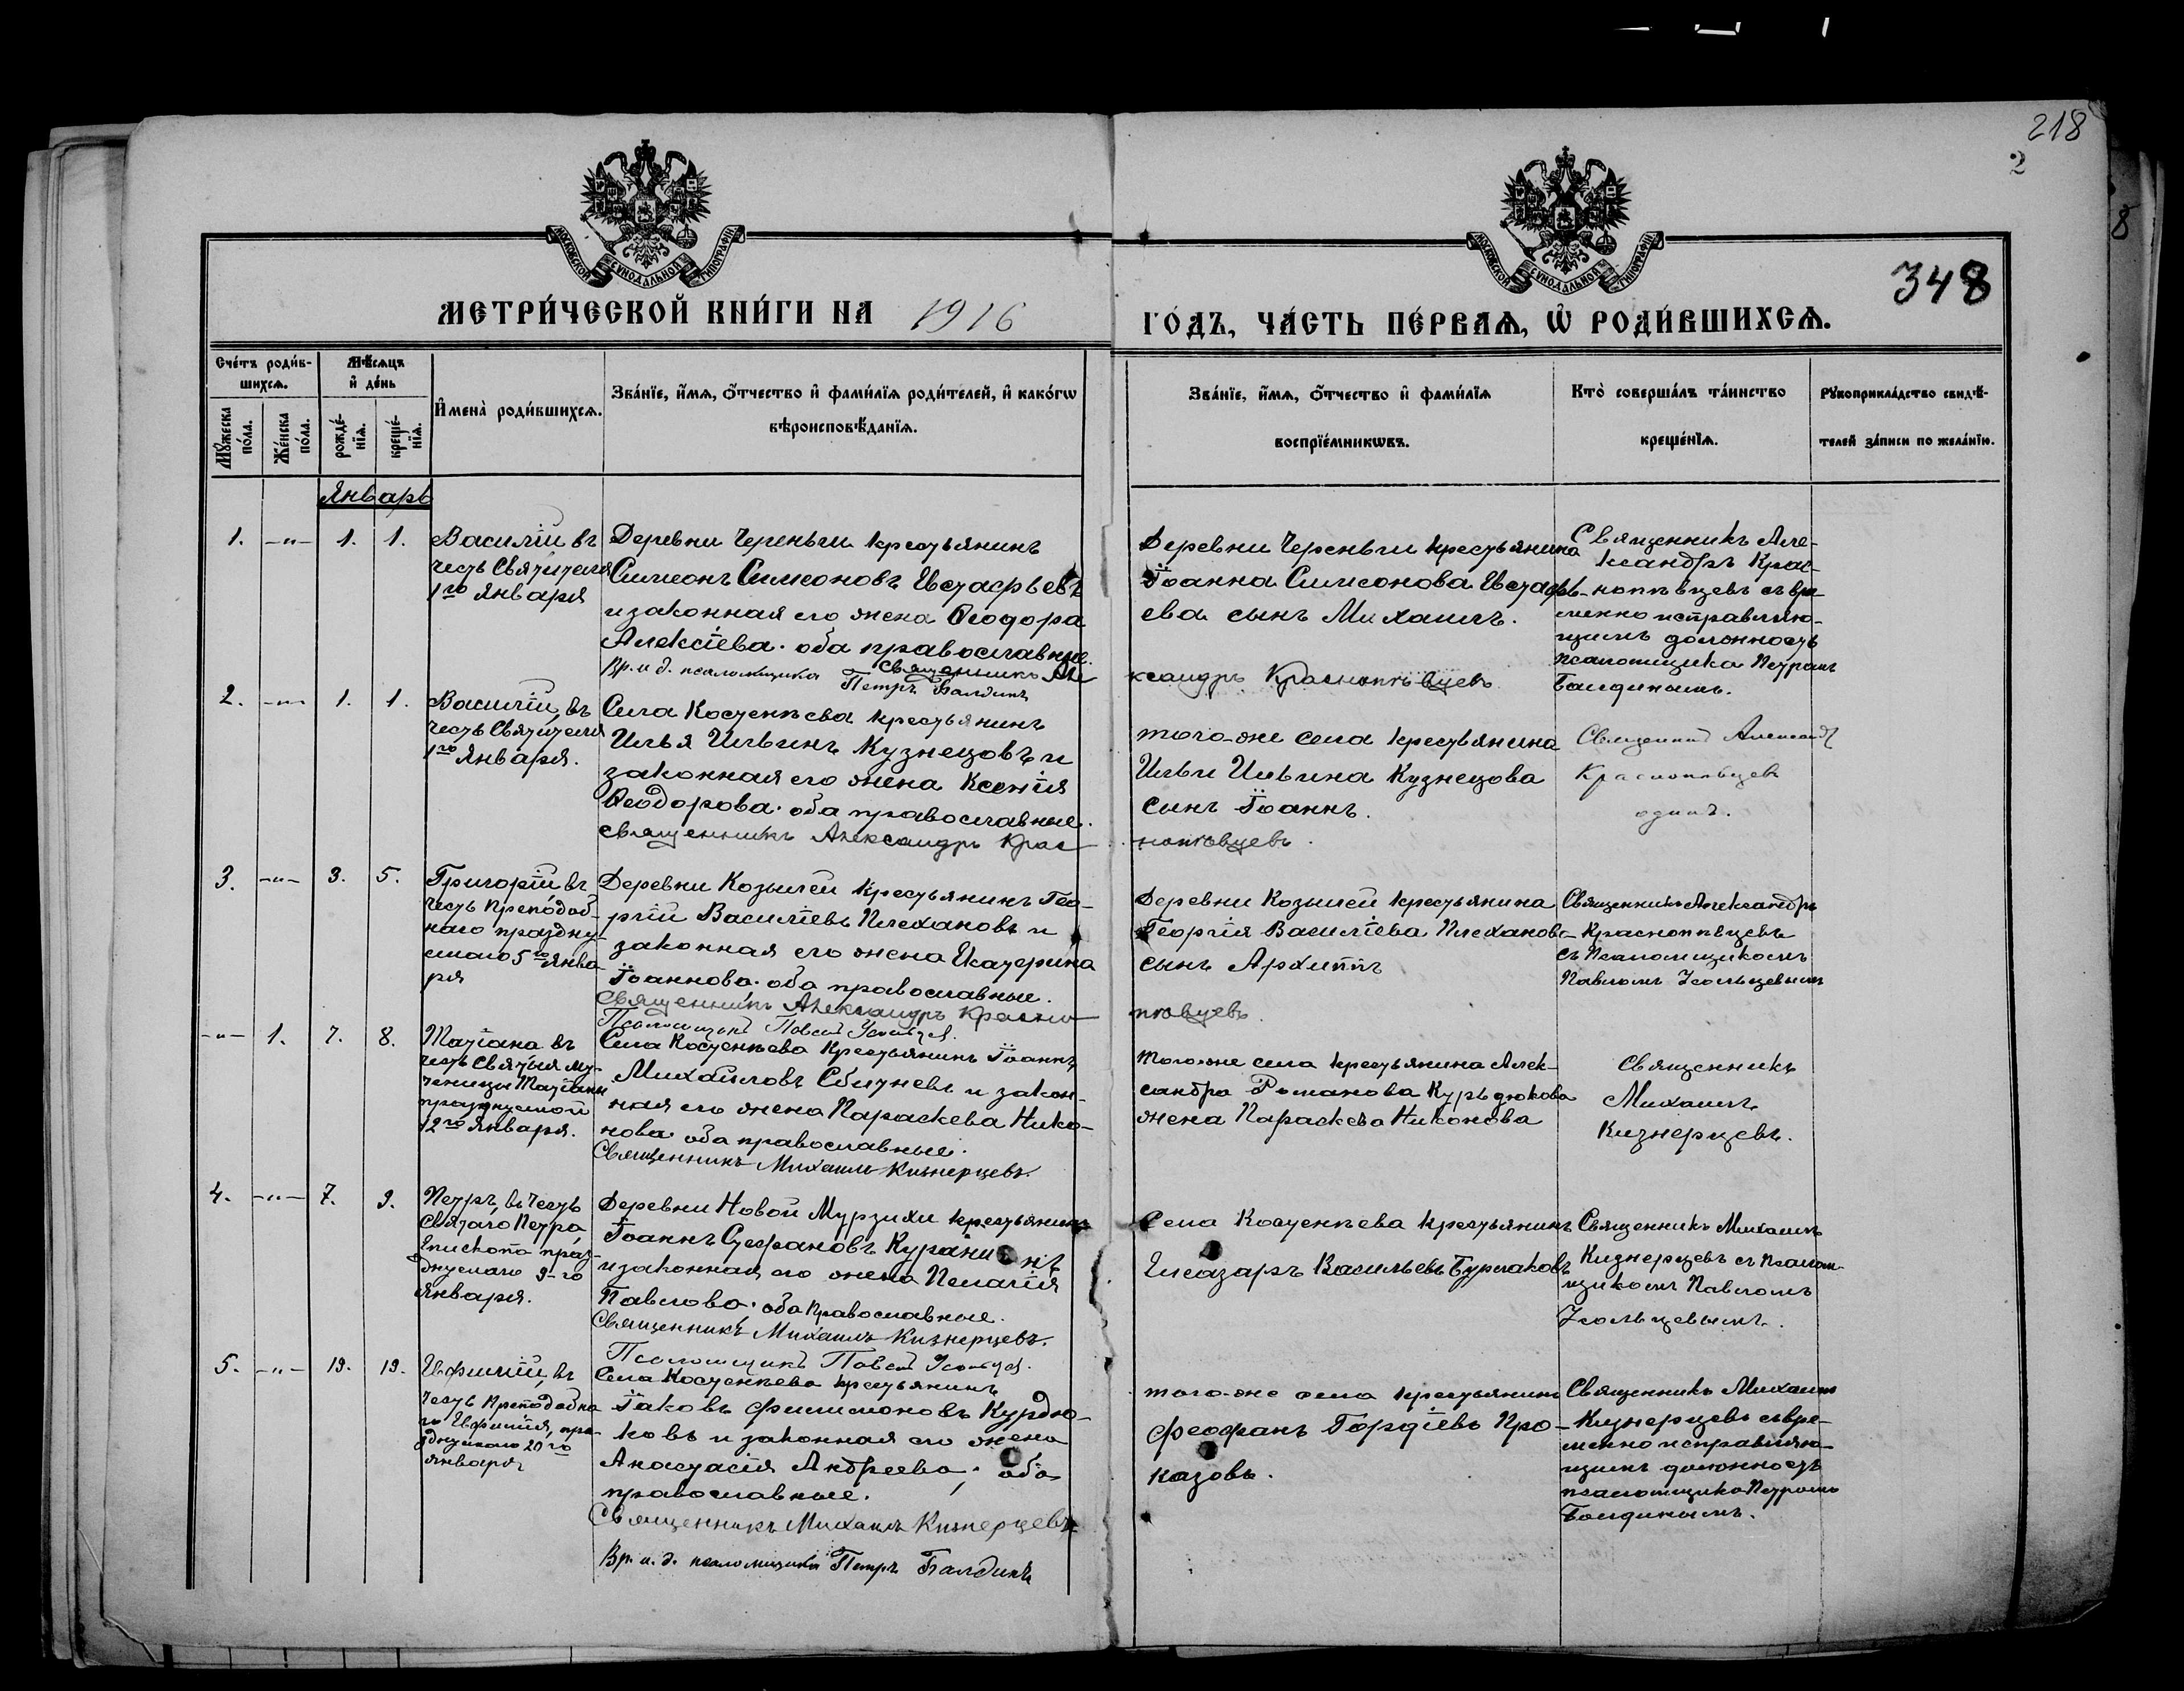 218
2
8
МОСКОВСКОЙ СѴНОДАЛЬНОЙ ТИПОГРАФІИ
МОСКОВСКОЙ СѴНОДАЛЬНОЙ ТИПОГРАФІИ
348
МЕТРИ́ЧЕСКОЙ КНИ́ГИ НА 1916
ГО́ДЪ, ЧА́СТЬ ПЕ́РВАѦ, Ѡ҆ РОДИ́ВШИХСѦ.
Сче́тъ роди́в-
шихсѧ.
Мѣ́сѧцъ
и҆ де́нь
Мꙋ́жеска
по́ла.
Же́нска
по́ла.
рожде́-
нїѧ.
креще́-
нїѧ.
И҆мена̀ роди́вшихсѧ.
Зва́нїе, и҆́мѧ, ѻ҆́тчество и҆ фами́лїѧ роди́телей, и҆ како́гѡ
вѣроисповѣ́данїѧ.
Зва́нїе, и҆́мѧ, ѻ҆́тчество и҆ фами́лїѧ
воспрїе́мникѡвъ.
Кто̀ соверша́лъ та́инство
креще́нїѧ.
Рꙋкоприкла́дство свидѣ́-
телей за́писи по жела́нїю.
Январь
1. -„- 1. 1.
Василій въ
честь Святителя
1го Января
Деревни Череньги крестьянинъ
Симеонъ Симеоновъ Евстафьевъ
и законная его жена Ѳеодора
Алексіева. оба православные.
Священникъ Але
Вр. и д. псаломщика Петръ Балдинъ
Деревни Череньги крестьянина
Іоанна Симеонова Евстафь-
ева сынъ Михаилъ.
ксандръ Краснопѣвцевъ
Священникъ Але-
ксандръ Крас-
нопѣвцевъ съ вре-
менно исправляю-
щимъ должность
псаломщика Петромъ
Балдинымъ.
2. -„- 1. 1.
Василій, въ
честь Святителя
1го Января.
Села Костенѣева крестьянинъ
Илья Ильинъ Кузнецовъ и
законная его жена Ксенія
Ѳеодорова. оба православные.
Священникъ Александръ Крас
Того-же села крестьянина
Ильи Ильина Кузнецова
сынъ Іоаннъ.
нопѣвцевъ.
Священникъ Александръ
Краснопѣвцевъ
одинъ.
3. -„- 3. 5.
Григорій въ
честь Преподоб-
наго праздну-
емаго 5го Янва-
ря
Деревни Козылей крестьянинъ Гео-
ргій Василіевъ Плехановъ и
законная его жена Екатерина
Іоаннова. оба православные.
Священникъ Александръ Красно
Псаломщикъ Павелъ
Деревни Козылей крестьянина
Георгія Василіева Плеханова
сынъ Архиппъ
пѣвцевъ.
Священникъ Александръ
Краснопѣвцевъ
съ Псаломщикомъ
Павломъ Усольцевымъ
-„- 1. 7. 8.
Татіана въ
честь Святыя му-
ченицы Татіаны
празднуемой
12го Января.
Села Костенѣева Крестьянинъ Іоаннъ
Михайловъ Сбитневъ и закон-
ная его жена Параскева Нико-
нова. оба православные.
Священникъ Михаилъ Кизнерцевъ.
Того-же села крестьянина Алек-
сандра Романова Курьдюкова
жена Параскева Никонова
Священникъ
Михаилъ
Кизнерцевъ.
4. -„- 7. 9.
Петръ, въ честь
Святаго Петра
Епископа праз-
днуемаго 9-го
Января.
Деревни Новой Мурзихи крестьянинъ
Іоаннъ Стефановъ
и законная его жена Пелагія
Павлова. оба Православные.
Священникъ Михаилъ Кизнерцевъ.
Псаломщикъ Павелъ
Села Костенѣева крестьянинъ
Елеазаръ Васильевъ Бурлаковъ
Священникъ Михаилъ
Кизнерцевъ съ Псалом-
щикомъ Павломъ
Усольцевымъ.
5. -„- 19. 19.
Евфимій, въ
честь Преподобна-
го Евфимія, пра-
зднуемаго 20го
Января
Села Костенѣева крестьянинъ
Іаковъ Филимоновъ Курдю-
ковъ и законная его жена
Анастасія Андреева, оба
православные.
Священникъ Михаилъ Кизнерцевъ
Вр. и. д. псаломщика Петръ Балдинъ
Того-же села крестьянинъ
Феофанъ Гордіевъ Про-
казовъ.
Священникъ Михаилъ
Кизнерцевъ съ вре-
менно исправляю-
щимъ должность
псаломщика Петромъ
Балдинымъ.